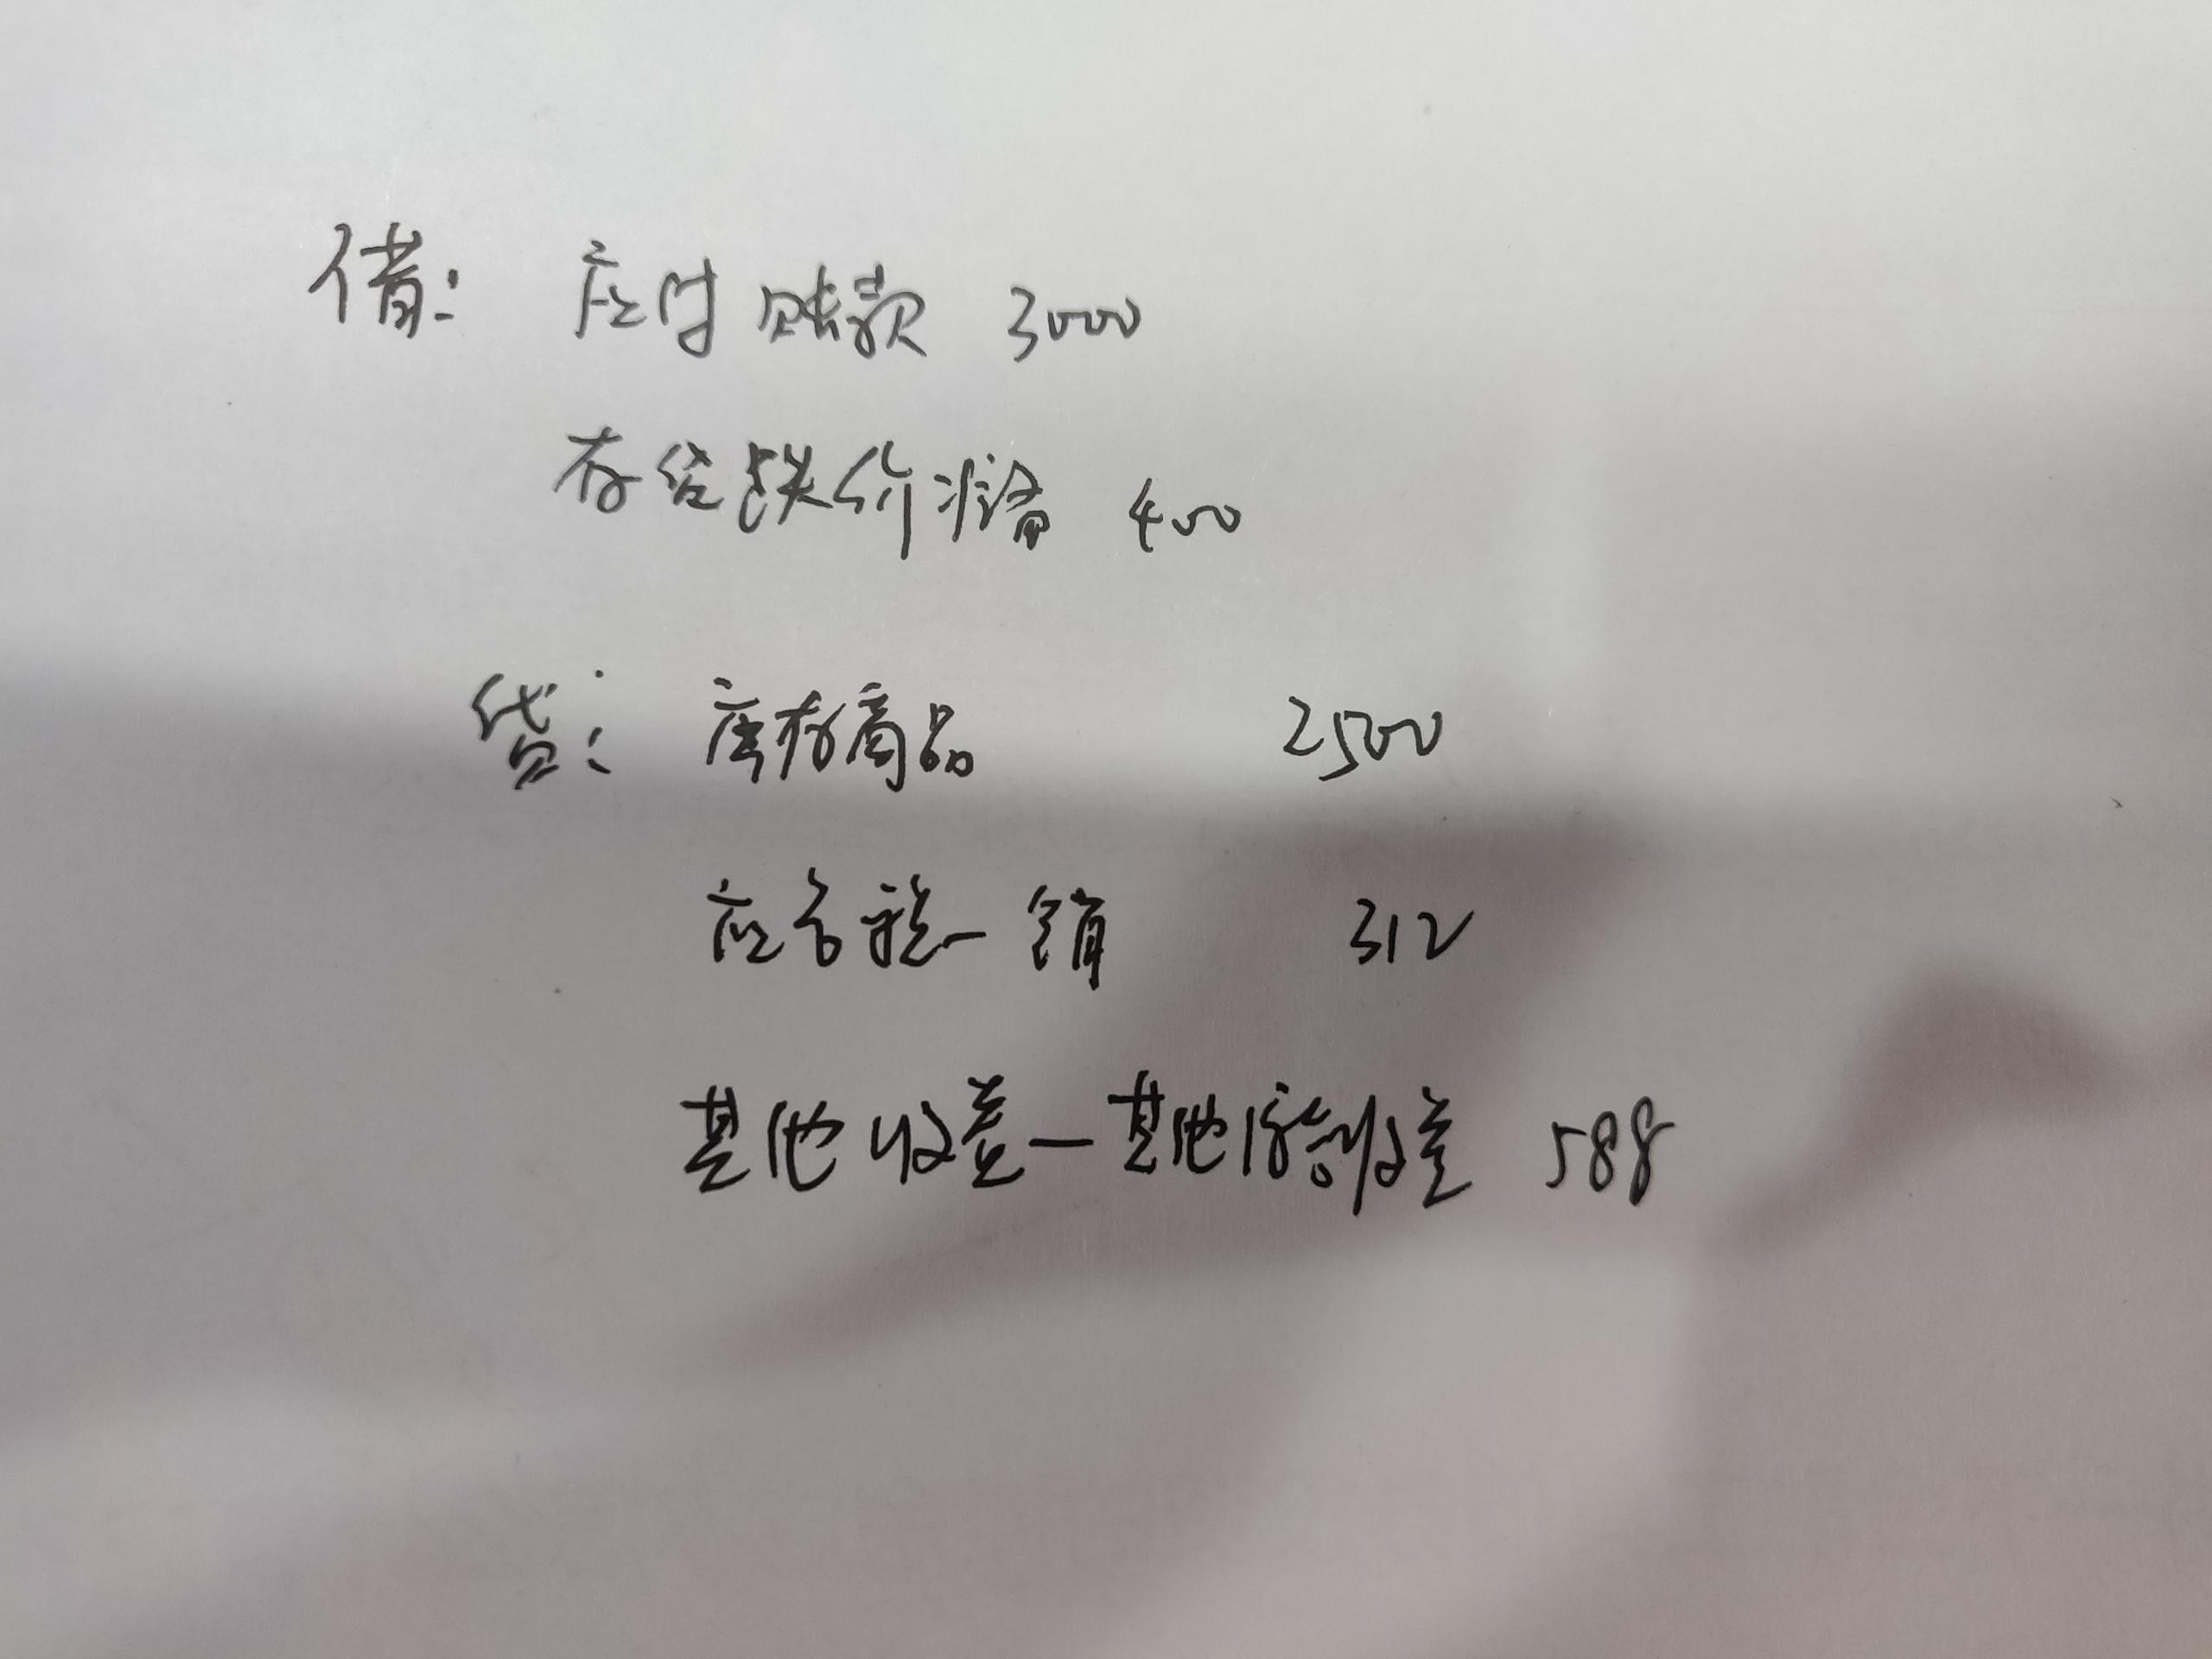 借： 应付账款 3000
存货跌价准备 400
贷： 库存商品 2500
应交税一销 312
其他收益一其他债务收益 588